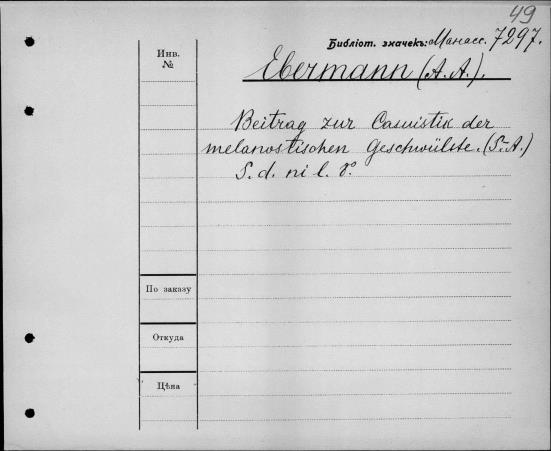 49
Библіот. значекъ: Манасс. 7297.
Инв.
№
Ebermann (A. A.).
Beitrag zur Casuistik der
melanostischen Geschwülste. (S.-A.)
S. d. ni l. 8°.
По заказу
Откуда
Цѣна